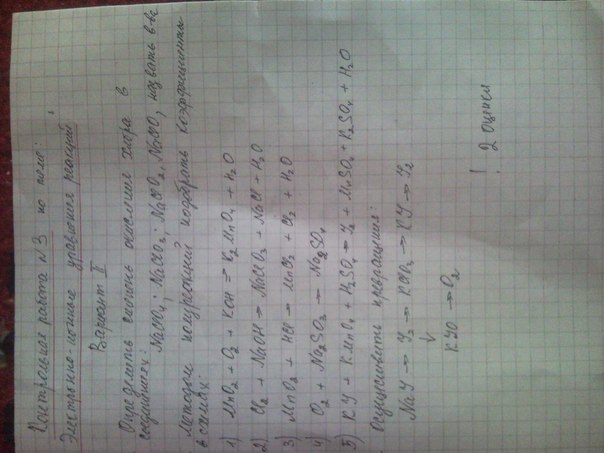 Контрольная работа №3 по теме:
Электронно-ионные уравнения реакций
Вариант II
Определить степень окисления хлора в
соединениях: NaClO4; NaClO3; NaClO2, NaClO, назвать в-ва
Методом полуреакций подобрать коэффициенты
в схемах:
1) MnO2 + O2 + KOH → K2MnO4 + H2O
2) Cl2 + NaOH → NaClO3 + NaCl + H2O
3) MnO2 + HCl → MnCl2 + Cl2 + H2O
4) O2 + Na2SO3 → Na2SO4
5) KJ + KMnO4 + H2SO4 → J2 + MnSO4 + K2SO4 + H2O
Осуществить превращения:
NaJ → J2 → → KJ → J2
↓
KJO → O2
! 2 оценки